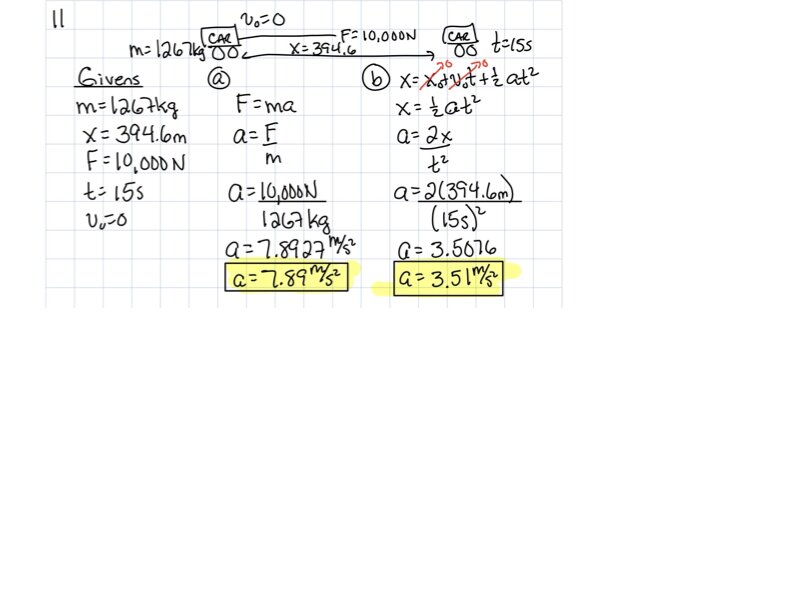 11
v₀=0
CAR
F=10,000N
m=1267kg
X=394.6
CAR
t=15s
Givens
m=1267kg
x=394.6m
F=10,000N
t=15s
v₀=0
a
F=ma
a=F/m
a=10,000N/1267kg
a=7.8927 m/s²
a=7.89 m/s²
b
x=x₀+v₀t+½at²
0 0
x=½at²
a=2x/t²
a=2(394.6m)/(15s)²
a=3.5076
a=3.51 m/s²